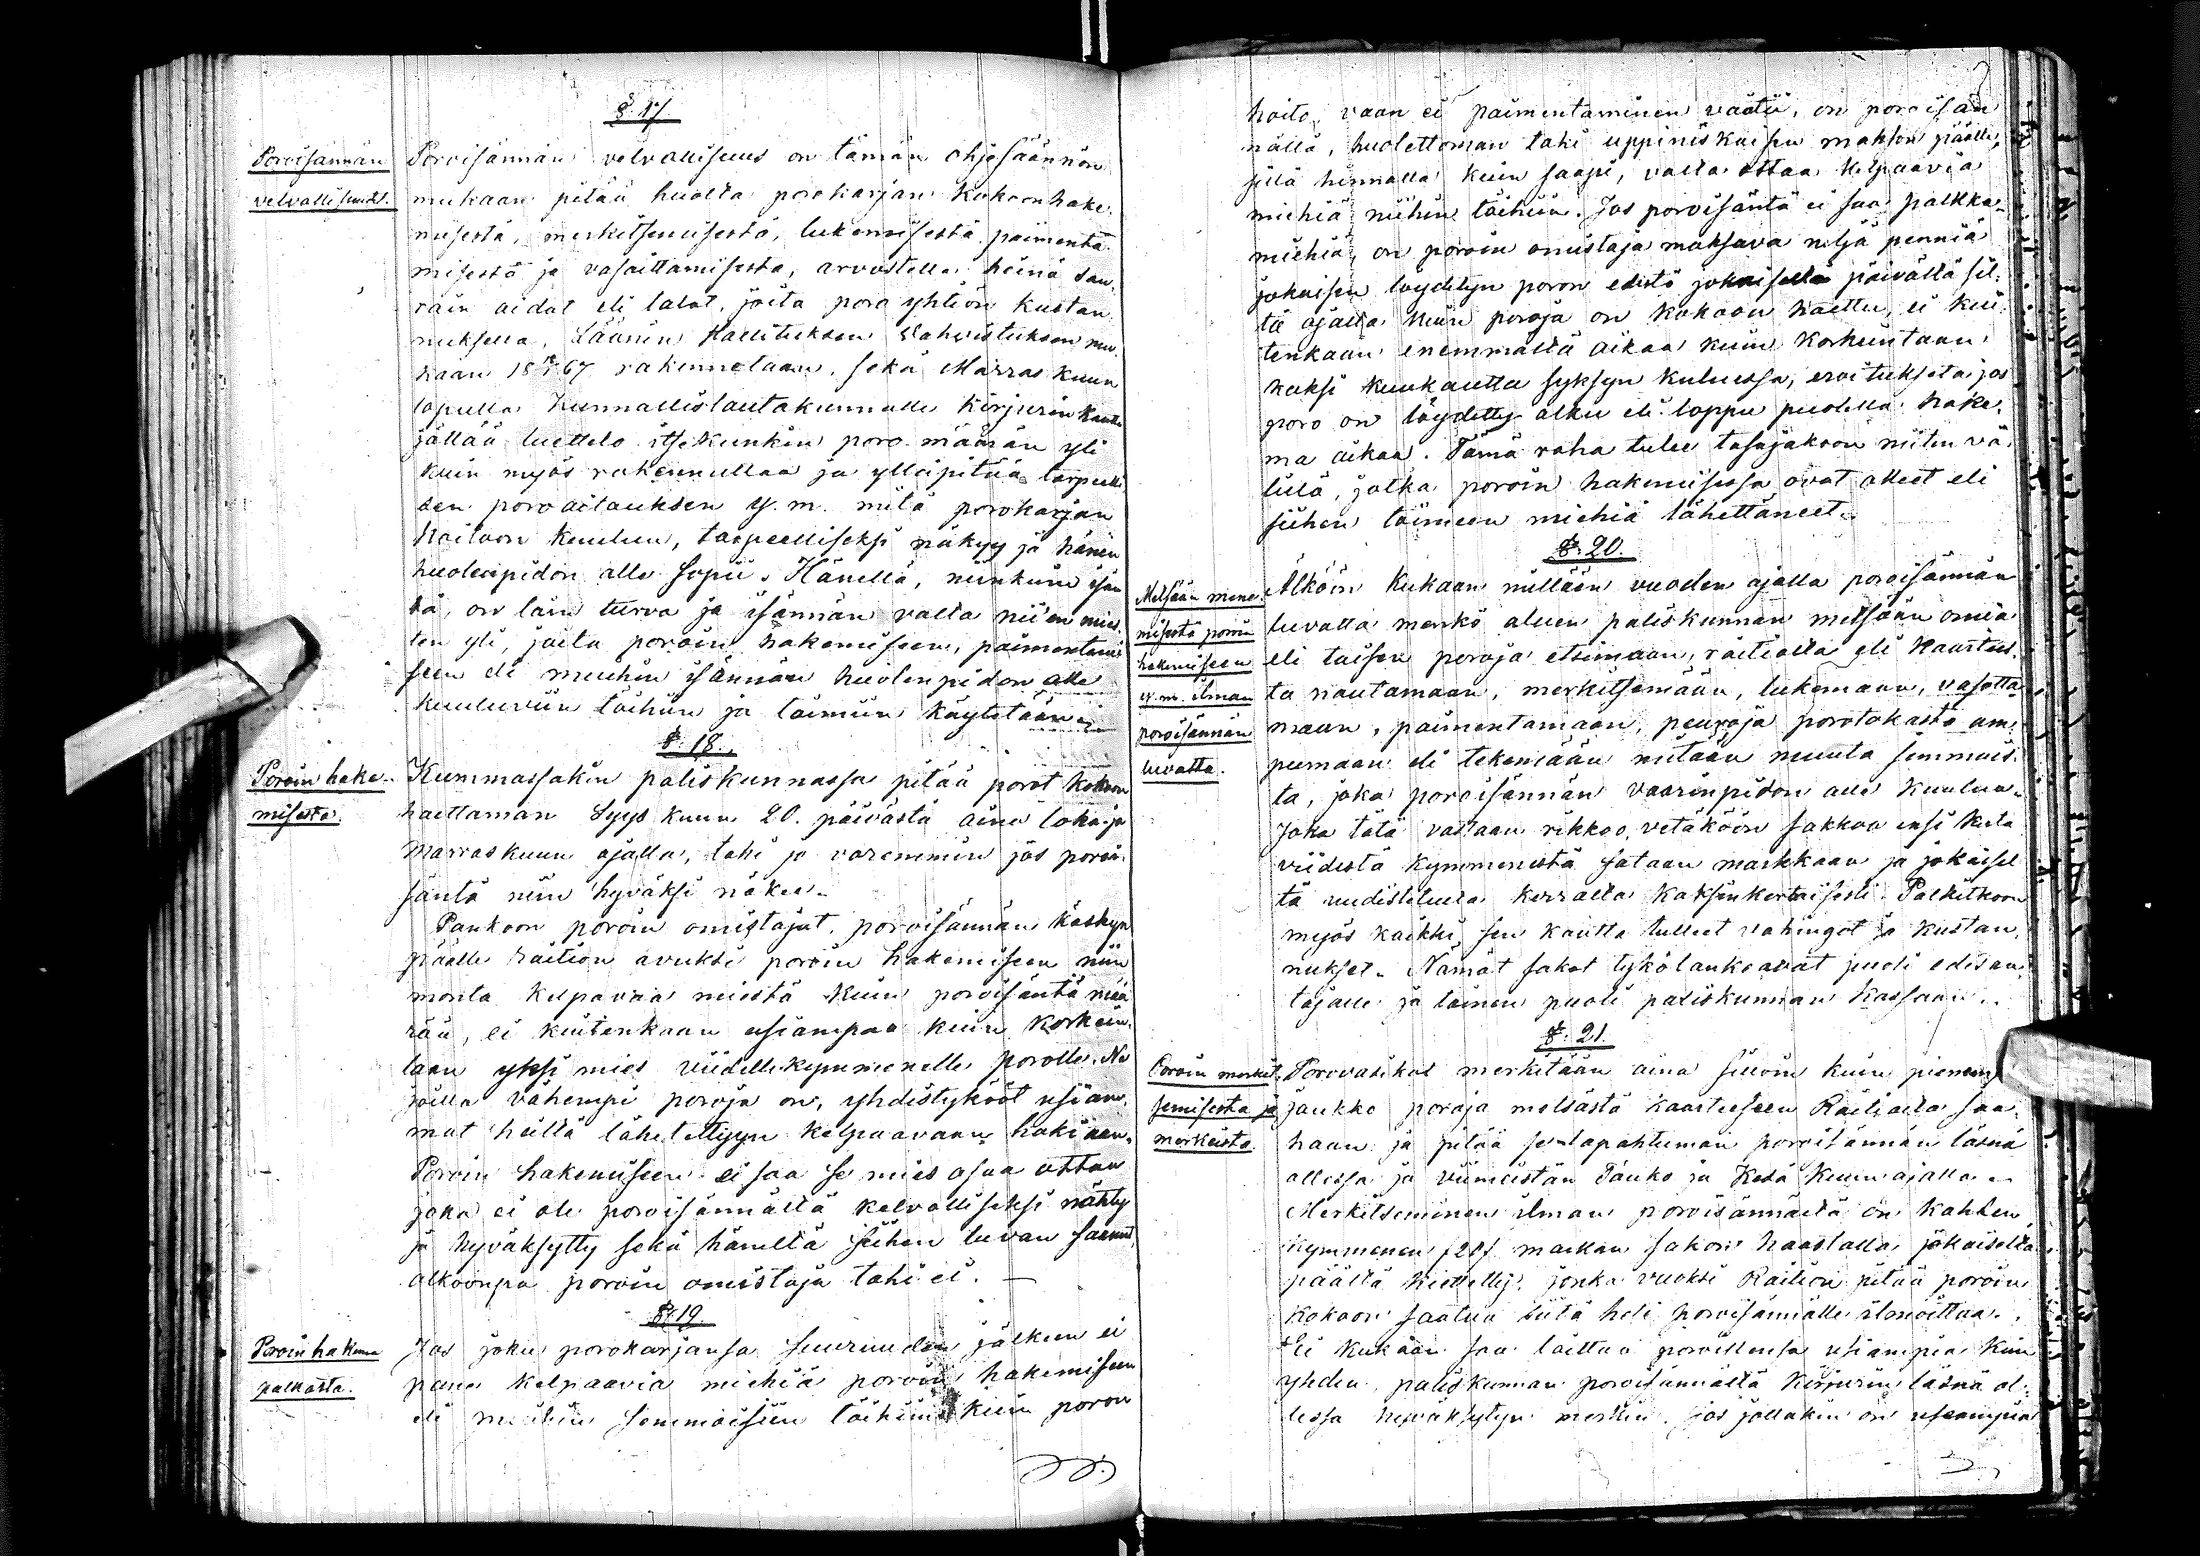 §. 17
Poroisännän
velvallisuudet.
Poroisännän velvallisuus on tämän ohjesäännön
mukaan pitää huolta porokarjan kokoonhake-
misesta, merkitsemisestä, lukemisesta paimenta
misesta ja vasoittamisesta, arvostella heinä sau-
rain aidat eli talat, joita poro yhtiön kustan
nuksella, Läänin Hallituksen Vahvistuksen mu-
kaan 1867 rakennetaan, sekä Marraskuun
lopulla Kunnallislautakunnalle kirjurin kautta
jättää luettelo itsekunkin poro määrän yli
kuin myös rakennuttaa ja ylläpitää tarpeelli
sen poroaitauksen y. m. mitä porokarjan
hoitoon kuuluu, tarpeelliseksi näkyy ja hänen
huolenpidon alle sopii. Hänellä, niinkuin isän
tä, on lain turva ja isännän valta niiden mies-
ten yli, joita poroin hakemiseen, paimentami
seen eli muuhin isännän huolenpidon alle
kuuluviin töihin ja toimiin käytetään.
§. 18.
Poroin hake-
misesta.
Kummassakin paliskunnassa pitää porot kokoon
haettaman Syys kuun 20. päivästä aina loka ja
Marraskuun ajalla, tahi jo varemmin jos poroi-
säntä niin hyväksi näkee.
Pankoon poroin omistajat, poroisännän käskyn
päälle Raition avuksi poroin hakemiseen niin
monta kelpaavaa miestä kuin poroisäntä mää
rää, ei kuitenkaan usiampaa kuin korkein-
taan yksi mies viidellekymmenelle porolle. Ne
joilla vähempi poroja on, yhdistykööt usiam-
mat heitä lähetettyyn kelpaavaan hakiaan.
Poroin hakemiseen ei saa se mies osaa ottaa
joka ei ole poroisännältä kelvolliseksi nähty
ja hyväksytty sekä häneltä siihen luvan saanut,
olkoonpa poroin omistaja tahi ei.
§. 19.
Poroin hakuu
palkasta.
Jos joku porokarjansa suuruuden jälkeen ei
pane kelpaavia miehiä poroin hakemiseen
eli muihin semmoisiin töihin kuin poron
hoito, vaan ei paimentaminen vaatii, on poroisän
nällä, huolettoman tahi uppiniskaisen makson päälle,
sillä hinnalla kuin saapi, valta ottaa kelpaavia
miehiä niihin töihin. Jos poroisäntä ei saa palkka-
miehiä, on poroin omistaja maksava neljä penniä
jokaisen löydetyn poron edestä jokaiselta päivältä sil-
tä ajalta kuin poroja on kokoon haettu, ei kui
tenkaan enemmältä aikaa kuin korkeintaan
kaksi kuukautta syksyn kuluessa, eroituksetta jos
poro on löydetty alku eli loppu puolella hake-
ma aikaa. Tämä raha tulee tasajakoon niiten vä-
lillä, jotka poroin hakemisessa ovat olleet eli
siihen toimeen miehiä lähettäneet.
§. 20.
Metsään mene
misestä poroin
hakemiseen
y. m. ilman
poroisännän
luvatta.
Älköön kukaan millään vuoden ajalla poroisännän
luvatta menkö aluen paliskunnan metsään omia
eli toisen poroja etsimään, raitiolta eli kaartees-
ta nautamaan, merkitsemään, lukemaan, vasotta
maan, paimentamaan, peuroja porotokasta am-
pumaan eli tekemään mitään muuta semmois-
ta, joka poroisännän vaarinpidon alle kuuluu.
Joka tätä vastaan rikkoo, vetäköön sakkoa ensi kerta
viidestä kymmenestä sataan markkaan ja jokaisel
ta uudistetulta kerralta kaksinkertaisesti. Palkitkoon
myös kaikki sen kautta tulleet vahingot ja kustan-
nukset. Nämät sakot tykölankeavat puoli edesan-
tajalle ja toinen puoli paliskunnan kassaan.
§. 21.
Poroin merkit-
semisesta ja
merkeistä.
Porovasikat merkitään aina silloin kuin pienempi
joukko poroja metsästä kaarteeseen Raitiolta saa-
haan ja pitää se tapahtuman poroisännän läsnä
ollessa ja viimeistän Touko ja Kesä kuun ajalla.
Merkitseminen ilman poroisännältä on kahden
kymmenen /20/ markan sakon haastolla jokaiselta
päältä kielletty, jonka vuoksi Raition pitää poroin
kokoon saatua siitä heti poroisännälle ilmoittaa.
Ei kukaan saa laittaa poroillensa usiampia kuin
yhden, paliskunnan poroisännältä kirjurin läsnä ol-
lessa hyväksytyn merkin. Jos jollakin on useampia